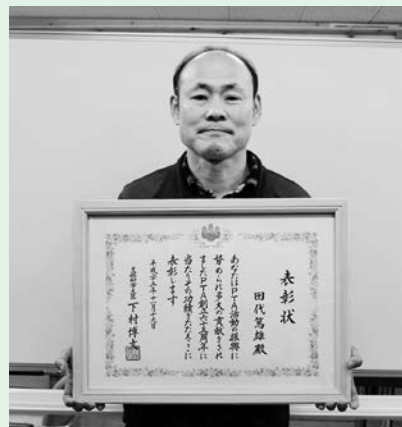 表彰状
田代篤雄殿
あなたはPTA活動の振興に
督められ多大の貢献をされ
ましたPTA創立六十五周年に
当たりその功績をたたえここに
表彰します
平成二十五年十一月十九日
文部科学大臣 下村博文